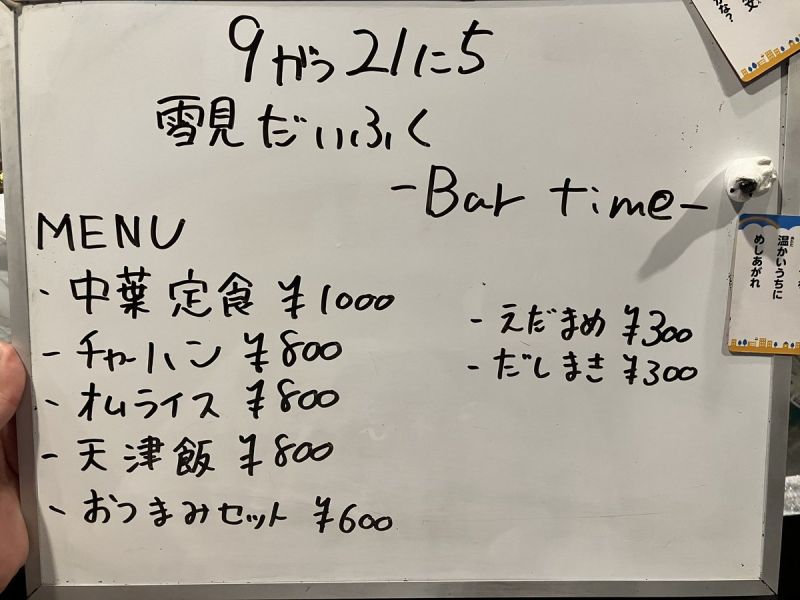 9がつ21にち
雪見だいふく
-Bar time-
MENU
・中葉定食 ¥1000
- チャーハン ¥800
- オムライス ¥800
- 天津飯 ¥800
- おつまみセット ¥600
- えだまめ ¥300
- だしまき ¥300
かな?
温かいうちに
めしあがれ